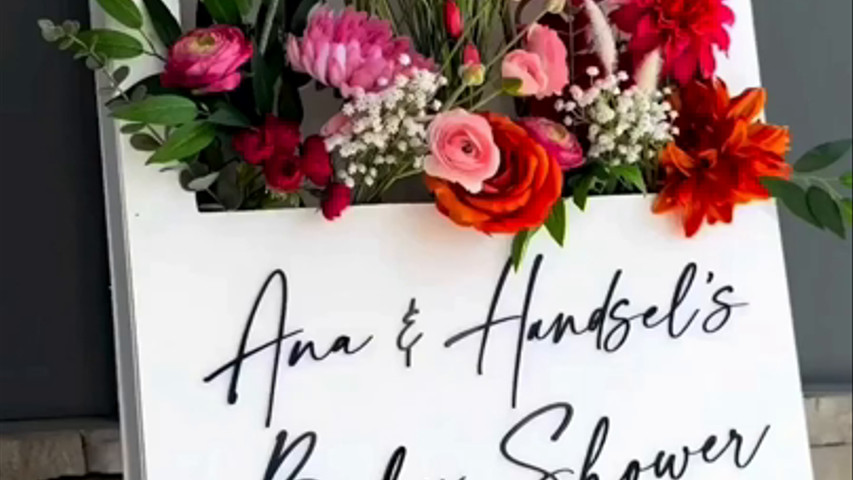 Ana & Handsel's
Baby Shower